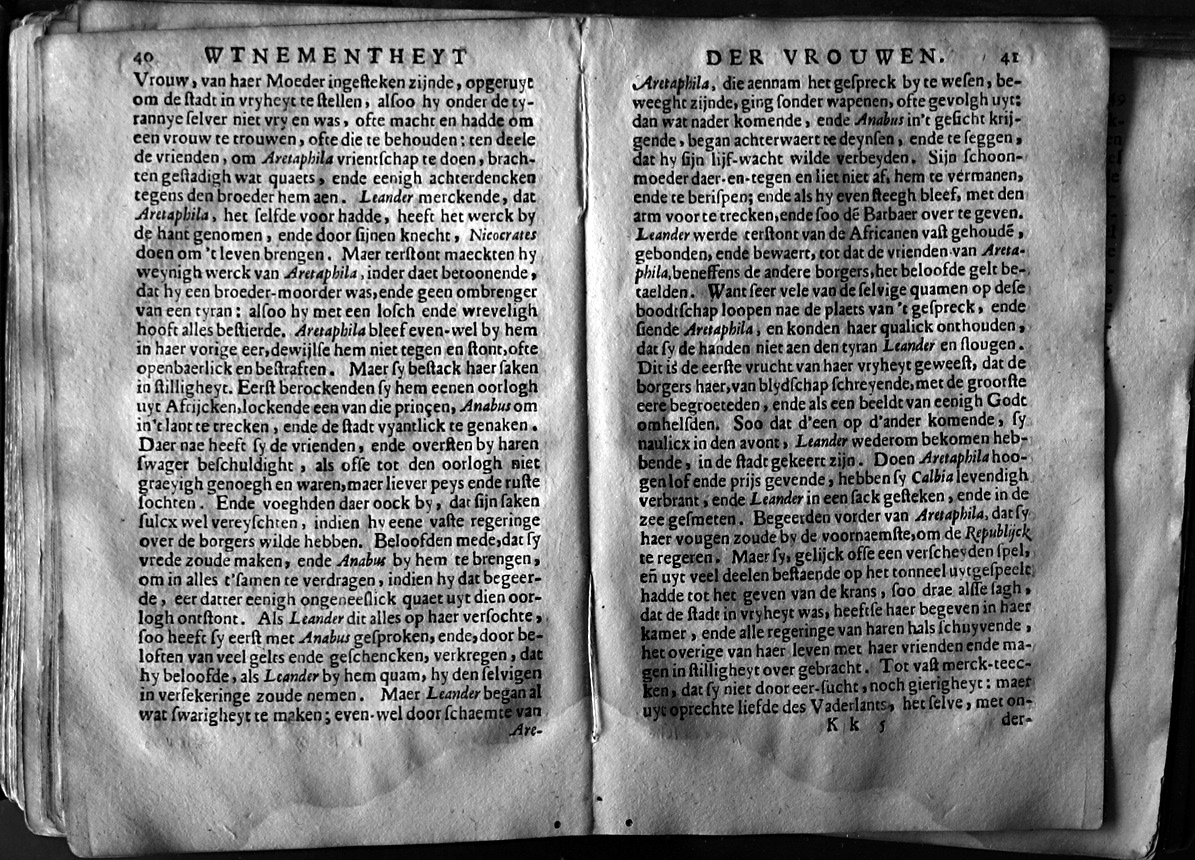 40 WTNEMENTHEYT
Vrouw, van haer Moeder ingeſteken zijnde, opgeruyt
om de ſtadt in vryheyt te ſtellen, alſoo hy onder de ty-
rannye ſelver niet vry en was, ofte macht en hadde om
een vrouw te trouwen, ofte die te behouden: ten deele
de vrienden, om Aretaphila vrientſchap te doen, brach-
ten geſtadigh wat quaets, ende eenigh achterdencken
tegens den broeder hem aen. Leander merckende, dat
Aretaphila, het ſelfde voor hadde, heeft het werck by
de hant genomen, ende door ſijnen knecht, Nicocrates
doen om 't leven brengen. Maer terſtont maeckten hy
weynigh werck van Aretaphila, inder daet betoonende,
dat hy een broeder-moorder was, ende geen ombrenger
van een tyran: alſoo hy met een loſch ende wreveligh
hooft alles beſtierde. Aretaphila bleef even-wel by hem
in haer vorige eer, dewijlſe hem niet tegen en ſtont, ofte
openbaerlick en beſtraften. Maer ſy beſtack haer ſaken
in ſtilligheyt. Eerſt berockenden ſy hem eenen oorlogh
uyt Afrijcken, lockende een van die prinçen, Anabus om
in 't lant te trecken, ende de ſtadt vyantlick te genaken.
Daer nae heeft ſy de vrienden, ende overſten by haren
ſwager beſchuldight, als offe tot den oorlogh niet
graeyigh genoegh en waren, maer liever peys ende ruſte
ſochten. Ende voeghden daer oock by, dat ſijn ſaken
ſulcx wel vereyſchten, indien hy eene vaſte regeringe
over de borgers wilde hebben. Beloofden mede, dat ſy
vrede zoude maken, ende Anabus by hem te brengen,
om in alles t'ſamen te verdragen, indien hy dat begeer-
de, eer datter eenigh ongeneeſlick quaet uyt dien oor-
logh ontſtont. Als Leander dit alles op haer verſochte,
ſoo heeft ſy eerſt met Anabus geſproken, ende, door be-
loften van veel gelts ende geſchencken, verkregen, dat
hy beloofde, als Leander by hem quam, hy den ſelvigen
in verſekeringe zoude nemen. Maer Leander began al
wat ſwarigheyt te maken; even-wel door ſchaemte van
Are-
DER VROUWEN. 41
Aretaphila, die aennam het geſpreck by te weſen, be-
weeght zijnde, ging ſonder wapenen, ofte gevolgh uyt:
dan wat nader komende, ende Anabus in't geſicht krij-
gende, began achterwaert te deynſen, ende te ſeggen,
dat hy ſijn lijf-wacht wilde verbeyden. Sijn ſchoon-
moeder daer-en-tegen en liet niet af, hem te vermanen,
ende te beriſpen; ende als hy even ſteegh bleef, met den
arm voor te trecken, ende ſoo dẽ Barbaer over te geven.
Leander werde terſtont van de Africanen vaſt gehoudẽ,
gebonden, ende bewaert, tot dat de vrienden van Areta-
phila, beneffens de andere borgers, het beloofde gelt be-
taelden. Want ſeer vele van de ſelvige quamen op deſe
boodtſchap loopen nae de plaets van 't geſpreck, ende
ſiende Aretaphila, en konden haer qualick onthouden,
dat ſy de handen niet aen den tyran Leander en ſlougen.
Dit is de eerſte vrucht van haer vryheyt geweeſt, dat de
borgers haer, van blydſchap ſchreyende, met de grootſte
eere begroeteden, ende als een beeldt van eenigh Godt
omhelſden. Soo dat d'een op d'ander komende, ſy
naulicx in den avont, Leander wederom bekomen heb-
bende, in de ſtadt gekeert zijn. Doen Aretaphila hoo-
gen lof ende prijs gevende, hebben ſy Calbia levendigh
verbrant, ende Leander in een ſack geſteken, ende in de
zee geſmeten. Begeerden vorder van Aretaphila, dat ſy
haer vougen zoude by de voornaemſte, om de Republijck
te regeren. Maer ſy, gelijck offe een verſcheyden ſpel,
eñ uyt veel deelen beſtaende op het tonneel uytgeſpeelt
hadde tot het geven van de krans, ſoo drae alſſe ſagh,
dat de ſtadt in vryheyt was, heeftſe haer begeven in haer
kamer, ende alle regeringe van haren hals ſchuyvende,
het overige van haer leven met haer vrienden ende ma-
gen in ſtilligheyt over gebracht. Tot vaſt merck-teec-
ken, dat ſy niet door eer-ſucht, noch gierigheyt: maer
uyt oprechte liefde des Vaderlants, het ſelve, met on-
K k 5 der-